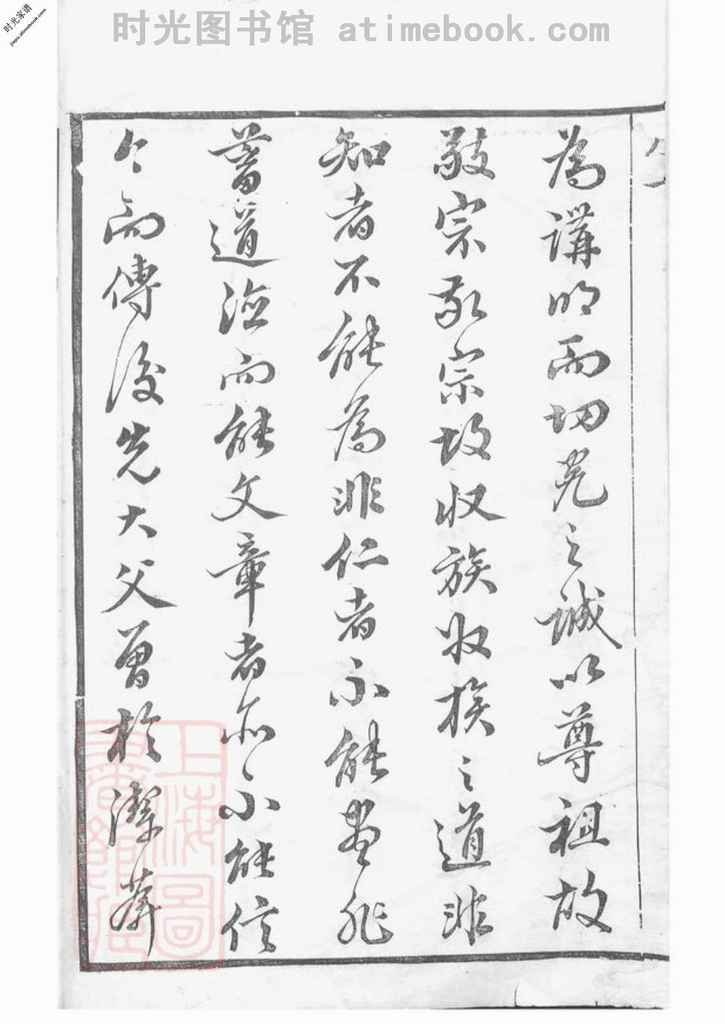 时光家谱
时光图书馆 atimebook.com
為講明而切究之誠以尊祖故
敬宗敬宗故收族收族之道非
知者不能為非仁者不能盡非
蓄道德而能文章者亦不能信
今而傳後先大父曾於
上海圖書館藏